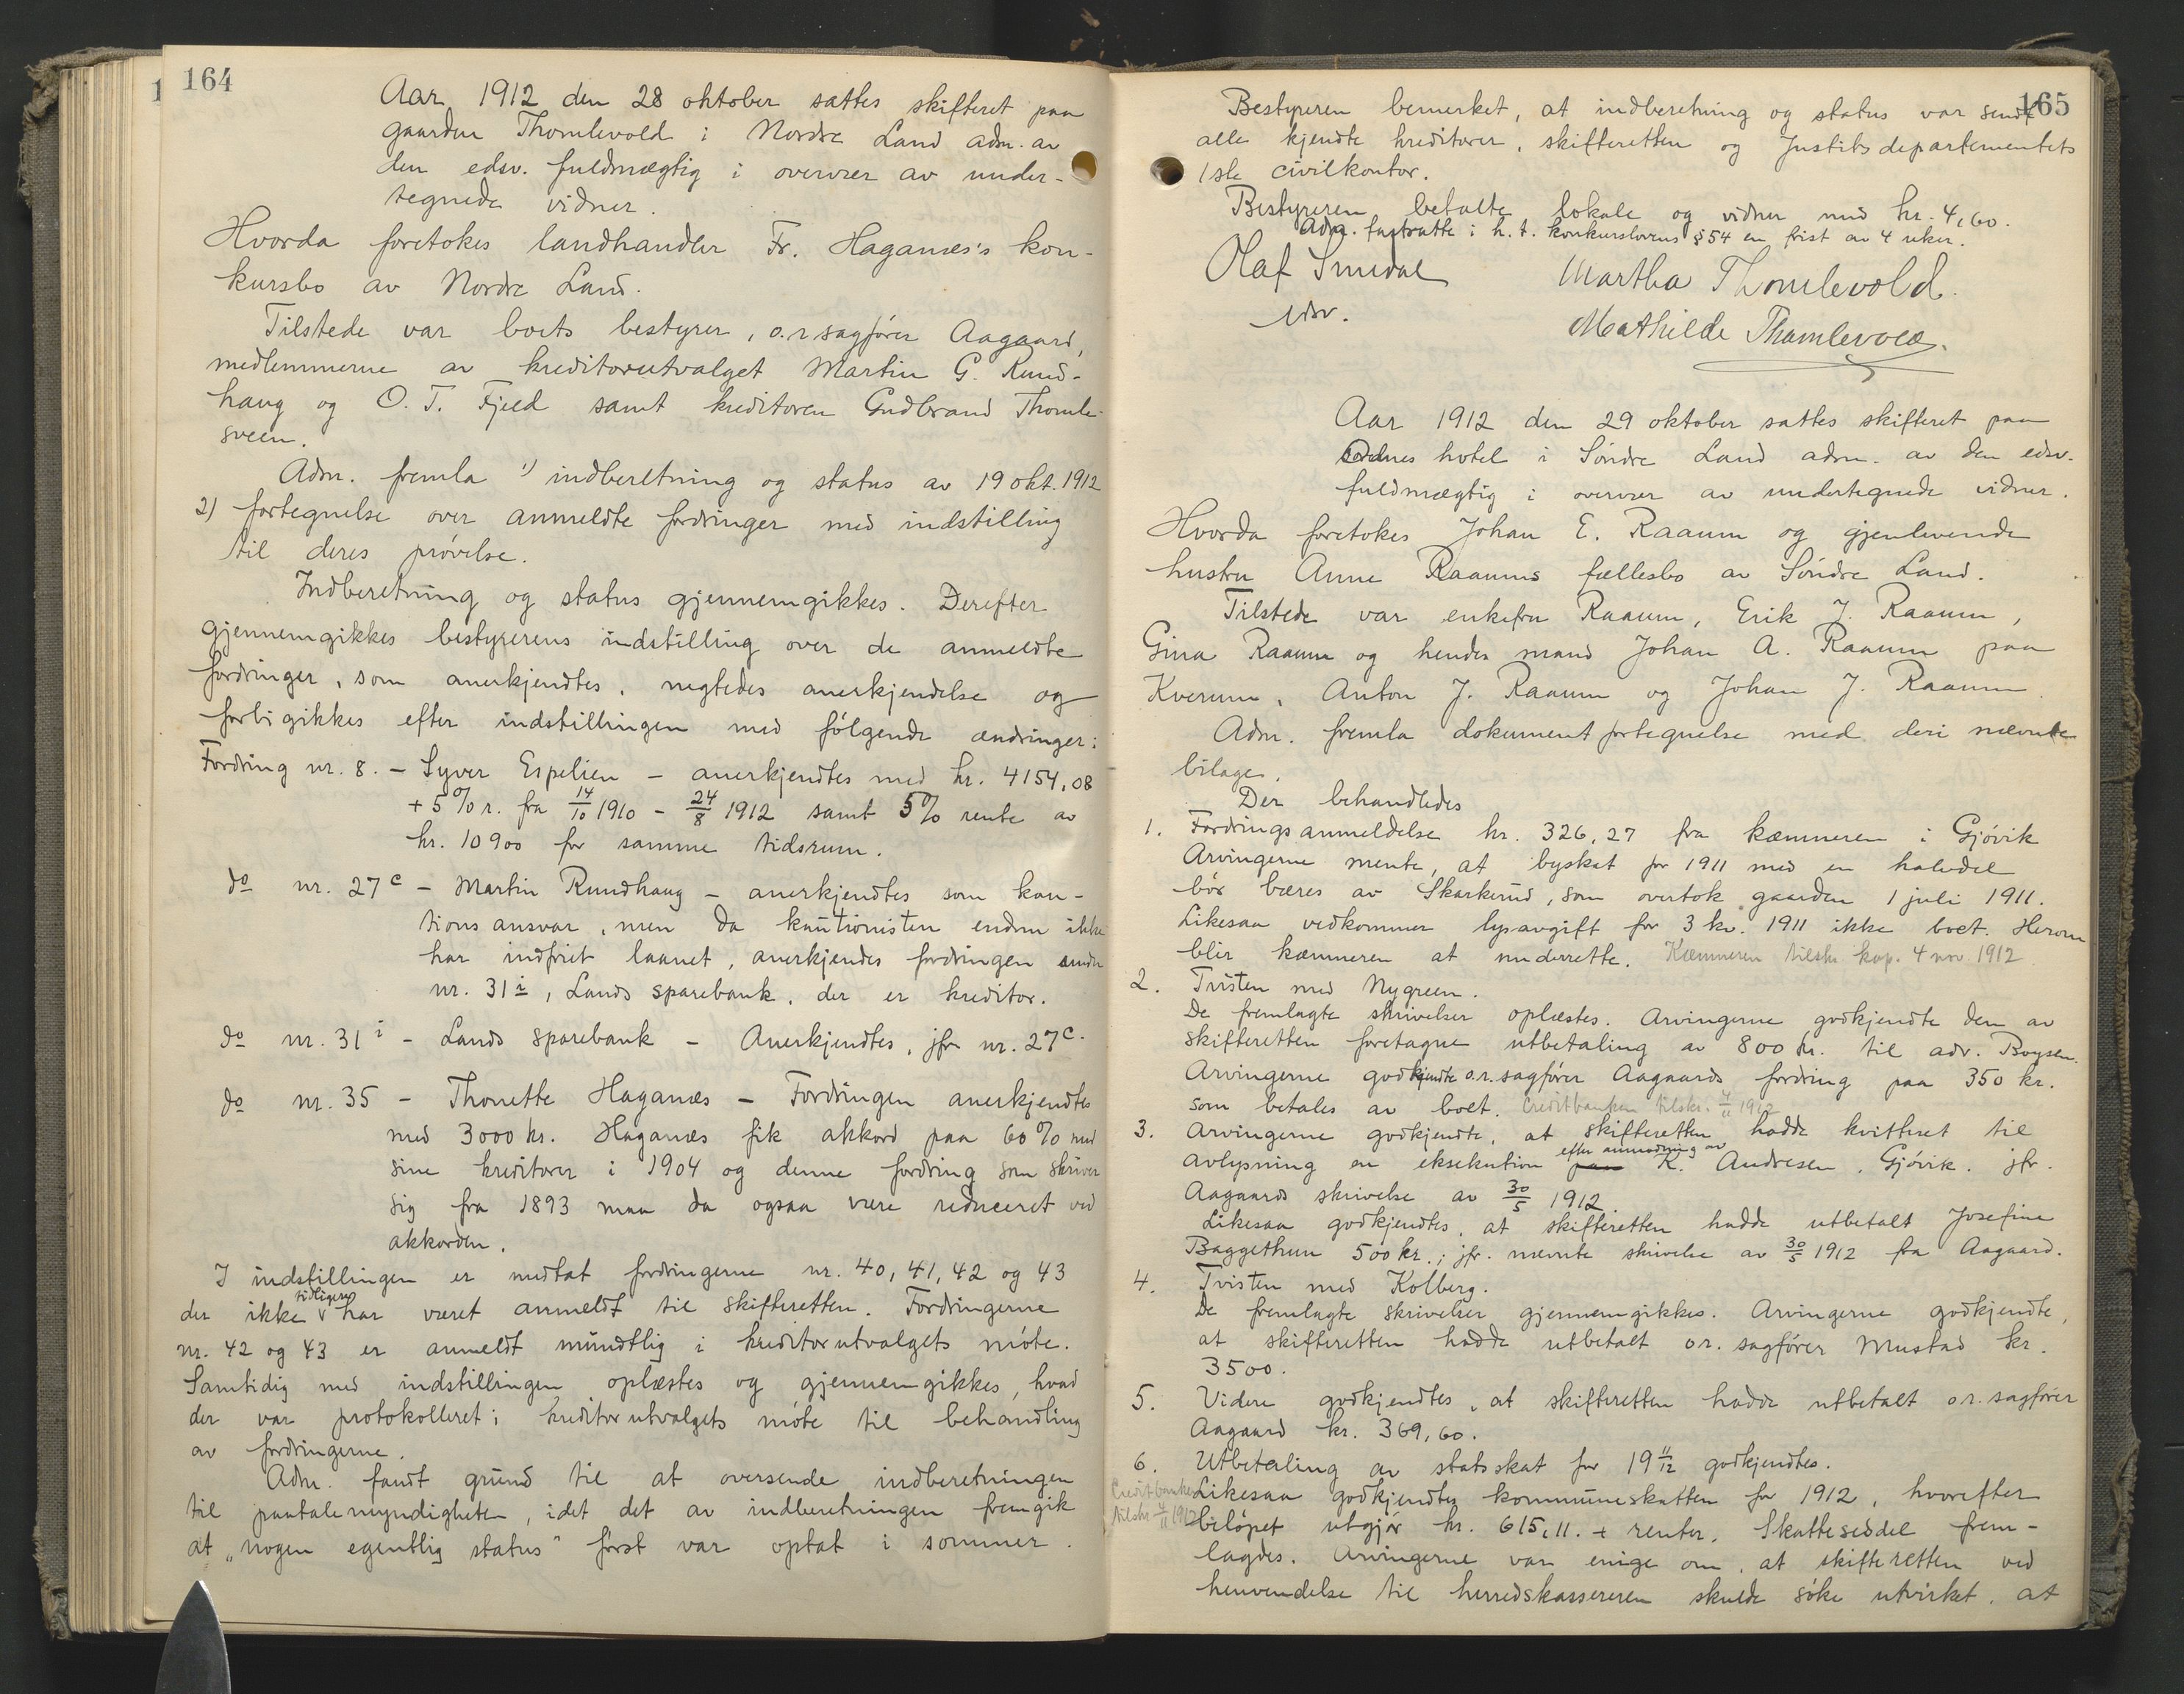 164
Aar 1912 den 28 oktober sattes skifteret paa
gaarden Thomlevold i Nordre Land adm. av
den edsv. fuldmægtig i overvær av under-
tegnede vidner.
Hvorda foretokes landhandler Fr. Haganæs's kon-
kursbo av Nordre Land.
Tilstede var boets bestyrer, o.r.sagfører Aagaard,
medlemmerne av kreditorutvalget Martin G. Rund-
haug og O. T. Fjeld samt kreditoren Gudbrand Thomle-
sveen.
Adm. fremla 1) indberetning og status av 19 okt. 1912
2) fortegnelse over anmeldte fordringer med indstilling
til deres prøvelse.
Indberetning og status gjennemgikkes. Derefter
gjennemgikkes bestyrerens indstilling over de anmeldte
fordringer, som anerkjendtes, negtedes anerkjendelse og
forbigikkes efter indstillingen med følgende ændringer:
Fordring nr. 8. - Syver Espelien - anerkjendtes med kr. 4154,08
+ 5% r. fra 14/10 1910 - 24/8 1912 samt 5% rente av
kr. 10900 for samme tidsrum.
do nr. 27c - Martin Rundhaug - anerkjendtes som kau-
tionsansvar, men da kautionisten endnu ikke
har indfriet laanet, anerkjendes fordringen under
nr. 31i, Lands sparebank, der er kreditor.
do nr. 31i - Lands sparebank - Anerkjendtes, jfr nr. 27c.
do nr. 35 - Thonette Haganæs - Fordringen anerkjendtes
med 3000 kr. Haganæs fik akkord paa 60% med
sine kreditorer i 1904 og denne fordring som skriver
sig fra 1893 maa da ogsaa være reduceret ved
akkorden.
I indstillingen er medtat fordringerne nr. 40, 41, 42 og 43
der ikke tidligere har været anmeldt til skifteretten. Fordringerne
nr. 42 og 43 er anmeldt mundtlig i kreditorutvalgets møte.
Samtidig med indstillingen oplæstes og gjennemgikkes, hvad
der var protokolleret i kreditorutvalgets møte til behandling
av fordringerne.
Adm. fandt grund til at oversende indberetningen
til paatalemyndigheten, idet det av indberetningen fremgik
at "nogen egentlig status" først var optat i sommer.
165
Bestyreren bemerket, at indberetning og status var sendt
alle kjendte kreditorer, skifteretten og Justitsdepartementets
1ste civilkontor.
Bestyreren betalte lokale og vidner med kr. 4,60.
Adm. fastsatte i h. t. konkurslovens § 54 en frist av 4 uker.
Olaf Smedal Martha Thomlevold.
edsv.
Mathilde Thomlevold.
Aar 1912 den 29 oktober sattes skifteret paa
Odnes hotel i Søndre Land adm. av den edsv.
fuldmægtig i overvær av undertegnede vidner.
Hvorda foretokes Johan E. Raaum og gjenlevende
hustru Anne Raaums fællesbo av Søndre Land.
Tilstede var enkefru Raaum, Erik J. Raaum,
Gina Raaum og hendes mand Johan A. Raaum paa
Kverum, Anton J. Raaum og Johan J. Raaum.
Adm. fremla dokumentfortegnelse med deri nævnte
bilage.
Der behandledes
1. Fordringsanmeldelse kr. 326,27 fra kæmneren i Gjøvik
Arvingerne mente, at byskat for 1911 med en halvdel
bør bæres av Skarkerud, som overtok gaarden 1 juli 1911.
Likesaa vedkommer lysavgift for 3 kv. 1911 ikke boet. Herom
blir kæmneren at underrette. Kæmneren tilskr. kop. 4 nov. 1912
2. Tvisten med Nygreen.
De fremlagte skrivelser oplæstes. Arvingerne godkjendte den av
skifteretten foretagne utbetaling av 800 kr. til adv. Boysen.
Arvingerne godkjendte o.r.sagfører Aagaards fordring paa 350 kr.
som betales av boet. Creditbanken tilskr. 4/11 1912
3. Arvingerne godkjendte, at skifteretten hadde kvitteret til
avlysning en eksekution efter anmodning av K. Andresen, Gjøvik. jfr.
Aagaards skrivelse av 30/5 1912.
Likesaa godkjendtes, at skifteretten hadde utbetalt Josefine
Baggethun 500 kr.; jfr. nævnte skrivelse av 30/5 1912 fra Aagaard.
4. Tvisten med Kolberg.
De fremlagte skrivelser gjennemgikkes. Arvingerne godkjendte,
at skifteretten hadde utbetalt o.r. sagfører Mustad kr.
3500.
5. Videre godkjendtes, at skifteretten hadde utbetalt o.r. sagfører
Aagaard kr. 369,60.
6. Utbetaling av statsskat for 19 11/12 godkjendtes.
Creditbanken tilskr. 4/11 1912
Likesaa godkjendtes kommuneskatten for 1912, hvorefter
beløpet utgjør kr. 615,11. + renter. Skatteseddel frem-
lagdes. Arvingerne var enige om, at skifteretten ved
henvendelse til herredskassereren skulde søke utvirket, at